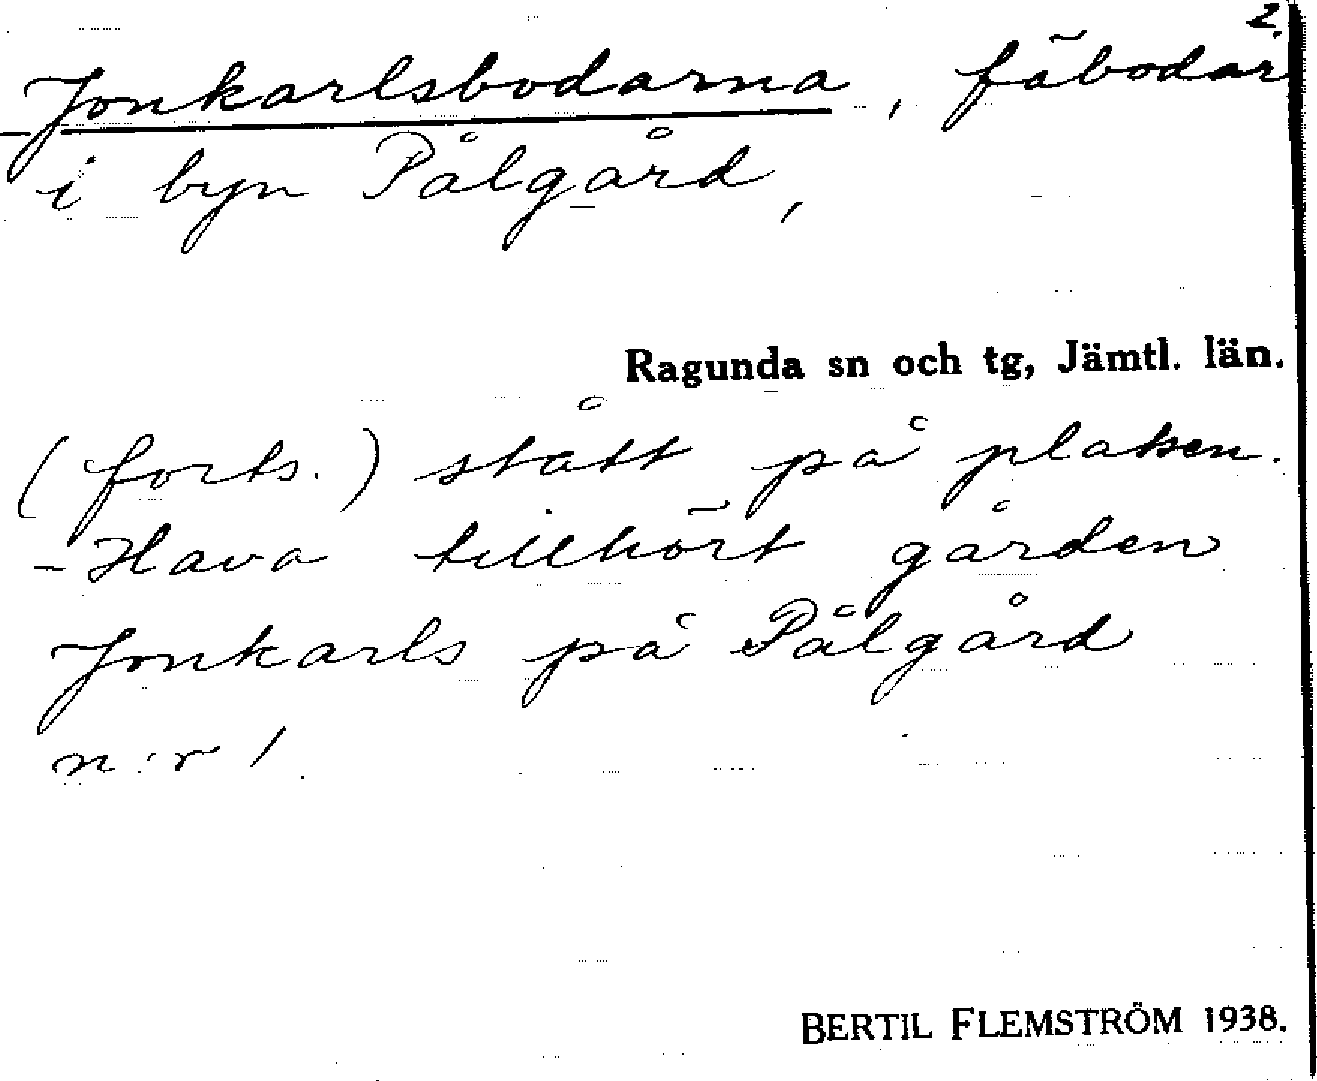 2.
Jonkarlsbodarna, fäbodar
i byn Pålgård,
Ragunda sn och tg, Jämtl. län.
(forts.) stått på platsen.
-Hava tillhört gården
Jonkarls på Pålgård
n:r 1.
BERTIL FLEMSTRÖM 1938.